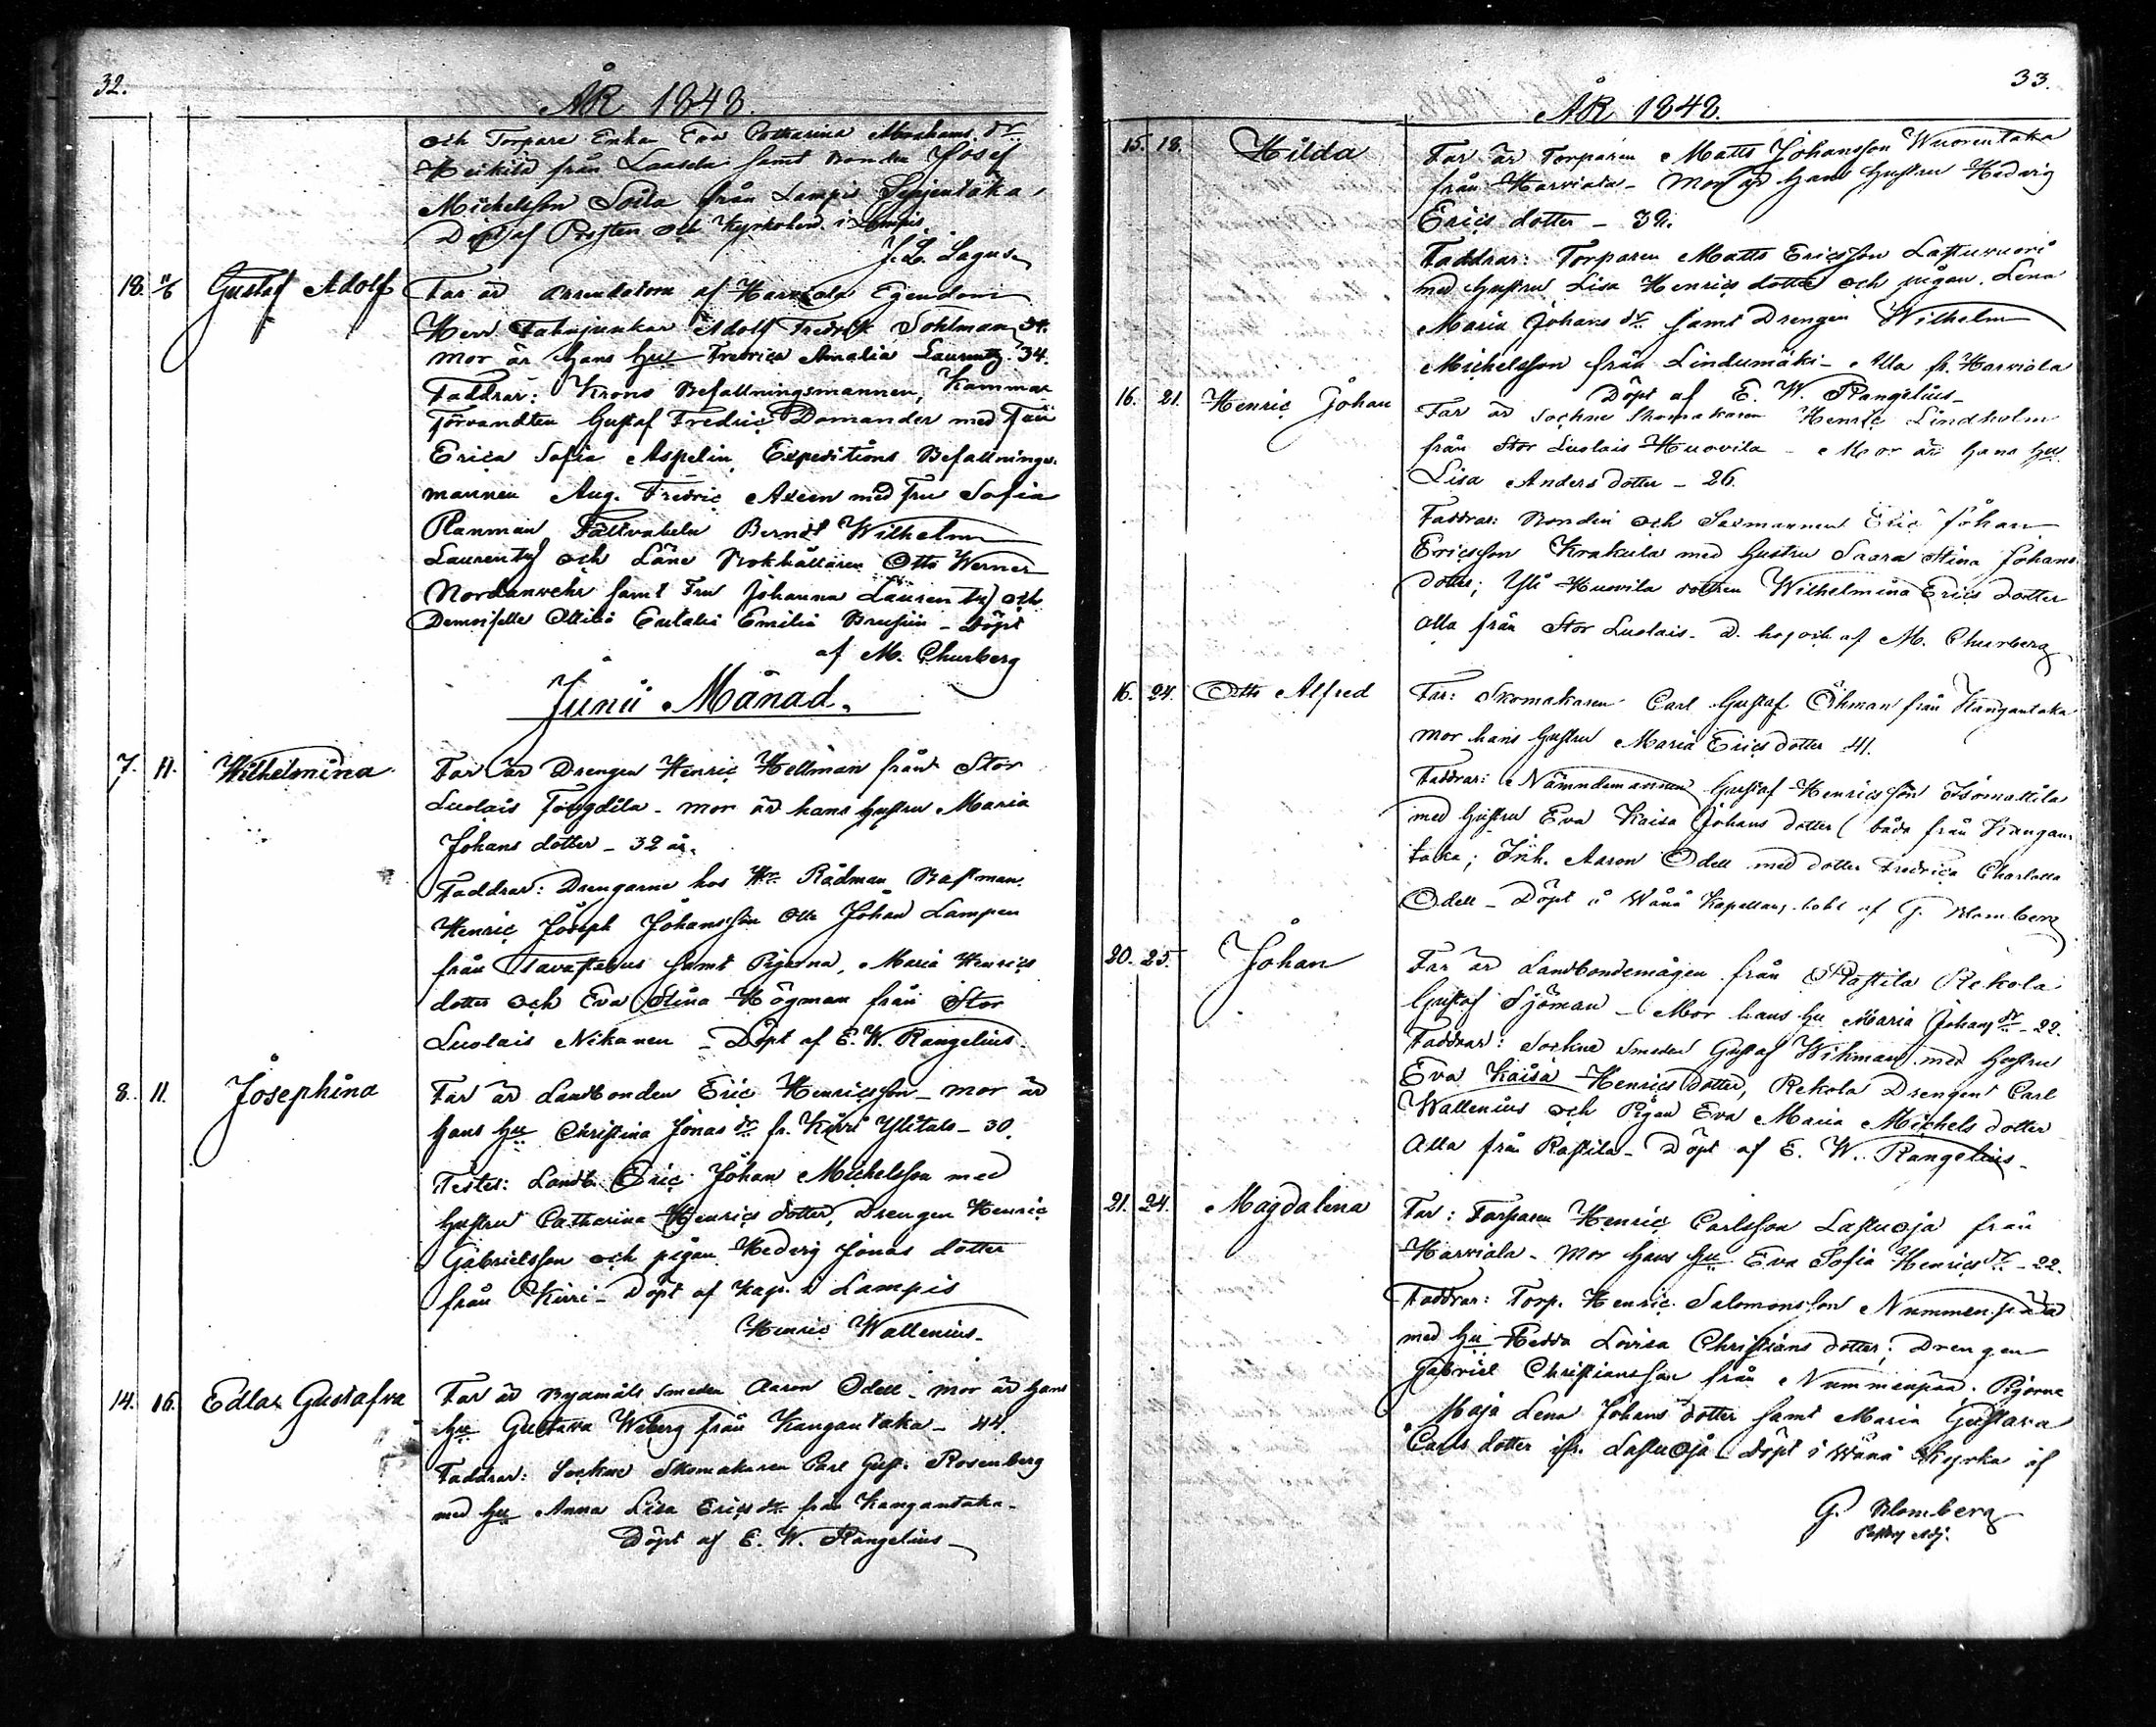 32.
ÅR 1848.
och Torpare Enkan Eva Catharina Abrahams dr
Heikilä från Laasala samt Bonden Josef
Michelsson Soila från Lampis
Döpt af Prosten och Kyrkoherd. i Lampis
J. L. Lagus
18. 11/6 Gustaf Adolf Far är Arrendatorn af Harviala Egendom
Herr Fahnjunkar Adolf Fredrik Sohlman
mor är hans hu Fredrica Amalia Laurenty. 34.
Faddrar: Krono Befallningsmannen, Kammar
förvandten Gustaf Fredric Domander med Fru
Erica Sofia Aspelin, Expeditions Befallnings-
mannen Aug. Fredric Axeen med Fru Sofia
Planman Fältväbeln Berndt Wilhelm
Laurenty och Läne Bokhållaren Otto Werner
Nordanwehr samt Fru Johanna Laurenty och
Demoiselle Ottilia Eulalia Emilia Brusiin - döpt
af M. Churberg
Junii Månad.
7. 11. Wilhelmina Far är Drengen Henric Hellman från Stor
Luolais Fougdila - mor är hans hustru Maria
Johans dotter - 32 år.
Faddrar: Drengarne hos Hr Rådman Bastman
Henric Joseph Johansson Otto Johan Lampen
från Tavastehus samt Pigorna, Maria Henrics
dotter och Eva Stina Högman från Stor
Luolais Nikanen - Döpt af E. W. Rangelius.
8. 11. Josephina Far är Landbonden Eric Henricsson - mor är
hans hu Christina Jonas dr fr. Kirri Ylitalo - 30.
Testes: Landb. Eric Johan Michelsson med
hustru Catharina Henrics dotter, Drengen Henric
Gabrielsson och pigan Hedvig Jonas dotter
från Kirri - Döpt af Kap. i Lampis
Henric Wallenius.
14. 16. Edla Gustafva Far är Byamåls Smeden Aaron Odell - mor är hans
hu Gustava Weberg från Kangantaka - 44.
Faddrar: Sockne Skomakaren Carl Gust. Rosenberg
med hu Anna Lisa Erics dr från Kangantaka -
Döpt af E. W. Rangelius -
33.
ÅR 1848.
15. 18. Hilda Far är Torparen Matts Johansson Wuorentaka
från Harviala - Mor är hans hustru Hedvig
Erics dotter - 32.
Faddrar: Torparen Matts Ericsson Lastuvuori
med hustru Lisa Henrics dotter och pigan Lena
Maria Johans dr samt Drengen Wilhelm
Michelsson från Lindumäki - Alla fr. Harviala
Döpt af E. W. Rangelius -
16. 21. Henric Johan Far är Sockne Skomakaren Henric Lindholm
från Stor Luolais Huovila - Mor är hans hu
Lisa Anders dotter - 26.
Faddrar: Bonden och Sexmannen Eric Johan
Ericsson Krakula med hustru Saara Stina Johans
dotter; Yli Huovila dottren Wilhelmina Erics dotter
alla från Stor Luolais - D. af M. Churberg
16. 24. Otto Alfred Far: Skomakaren Carl Gustaf Öhman från Kangantaka
mor hans hustru Maria Erics dotter 41.
Faddrar: Nämndemannen Gustaf Henricsson Isomattila
med hustru Eva Kaisa Johans dotter (båda från Kangan-
taka; Inh. Aaron Odell med dotter Fredrica Charlotta
Odell - Döpt å Wånå Kapellans bohl af G. Blomberg
20. 25. Johan Far är Landbondemågen från Rastila Rekola
Gustaf Sjöman - Mor hans hu Maria Johans dr - 22.
Faddrar: Sockne Smeden Gustaf Wihman med hustru
Eva Kaisa Henrics dotter, Rekola Drengen Carl
Wallenius och Pigan Eva Maria Michels dotter
Alla från Rastila - Döpt af E. W. Rangelius -
21. 24. Magdalena Far: Torparen Henric Carlsson Lastuoja från
Harviala - Mor hans hu Eva Sofia Henrics dr - 22.
Faddrar: Torp. Henric Salomonsson Nummenpää
med hu Hedda Lovisa Christians dotter; Drengen
Gabriel Christiansson från Nummenpää. Pigorna
Maja Lena Johans dotter samt Maria Gustava
Carls dotter fr. Lastuoja - Döpt i Wånå Kyrka af
G. Blomberg
Pastors Adj.